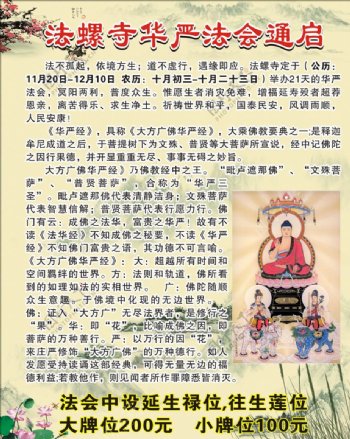 法螺寺华严法会通启
法不孤起，依境方生；道不虚行，遇缘即应。法螺寺定于（公历：
11月20日-12月10日 农历：十月初三-十月二十三日）举办21天的华严
法会，冥阳两利，普度众生。惟愿生者消灾免难，增福延寿殁者超荐
恩亲，离苦得乐、求生净土。祈祷世界和平，国泰民安，风调雨顺，
人民安康！
《华严经》，具称《大方广佛华严经》，大乘佛教要典之一;是释迦
牟尼成道之后，于菩提树下为文殊、普贤等大菩萨所宣说，经中记佛陀
之因行果德，并开显重重无尽、事事无碍之妙旨。
大方广佛华严经》乃佛教经中之王。“毗卢遮那佛”、“文殊菩
萨”、“普贤菩萨”，合称为“华严三
圣”。毗卢遮那佛代表清静法身；文殊菩萨
代表智慧信解；普贤菩萨代表行愿力行。佛
门有云：成佛之法华，富贵之华严！故有不
读《法华经》不知成佛之秘要，不读《华严
经》不知佛门富贵之语，其功德不可言喻。
《大方广佛华严经》：大：超越所有时间和
空间羁绊的世界。方：法则和轨道，佛所看
到的如理如法的实相世界。 广：佛陀随顺
众生意趣，于佛境中化现的无边世界。
佛：证入“大方广”无尽法界者，是修行之
“果”。华：即“花”，比喻成佛之因，即
菩萨的万种善行。严：以万行的因“花”，
来庄严修饰“大方广佛”的万种德行。如人
发愿受持读诵这部经典，可得无量无边的福
德利益;若教他作，则见闻者所作罪障悉皆消灭。
法会中设延生禄位,往生莲位
大牌位200元 小牌位100元